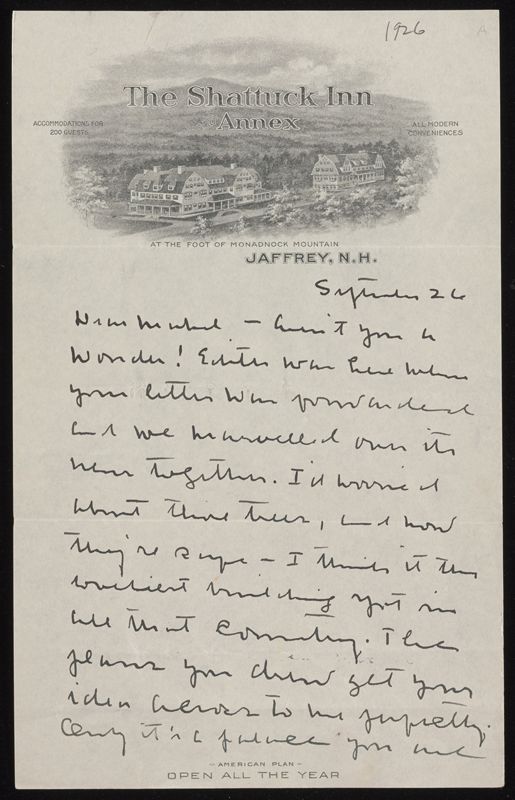 1926
A
The Shattuck Inn
and Annex
ACCOMMODATIONS FOR
200 GUESTS
ALL MODERN
CONVENIENCES
AT THE FOOT OF MONADNOCK MOUNTAIN
JAFFREY, N.H.
September 26
Dear Mabel — Ain't you a
wonder! Edith was here when
your letter was forwarded
and we marvelled over its
news together. I'd worried
about those trees, and now
they're safe — I think it the
loveliest building yet in
all that country. The
plans you drew get your
idea across to me perfectly.
Only it's a palace you and
— AMERICAN PLAN —
OPEN ALL THE YEAR